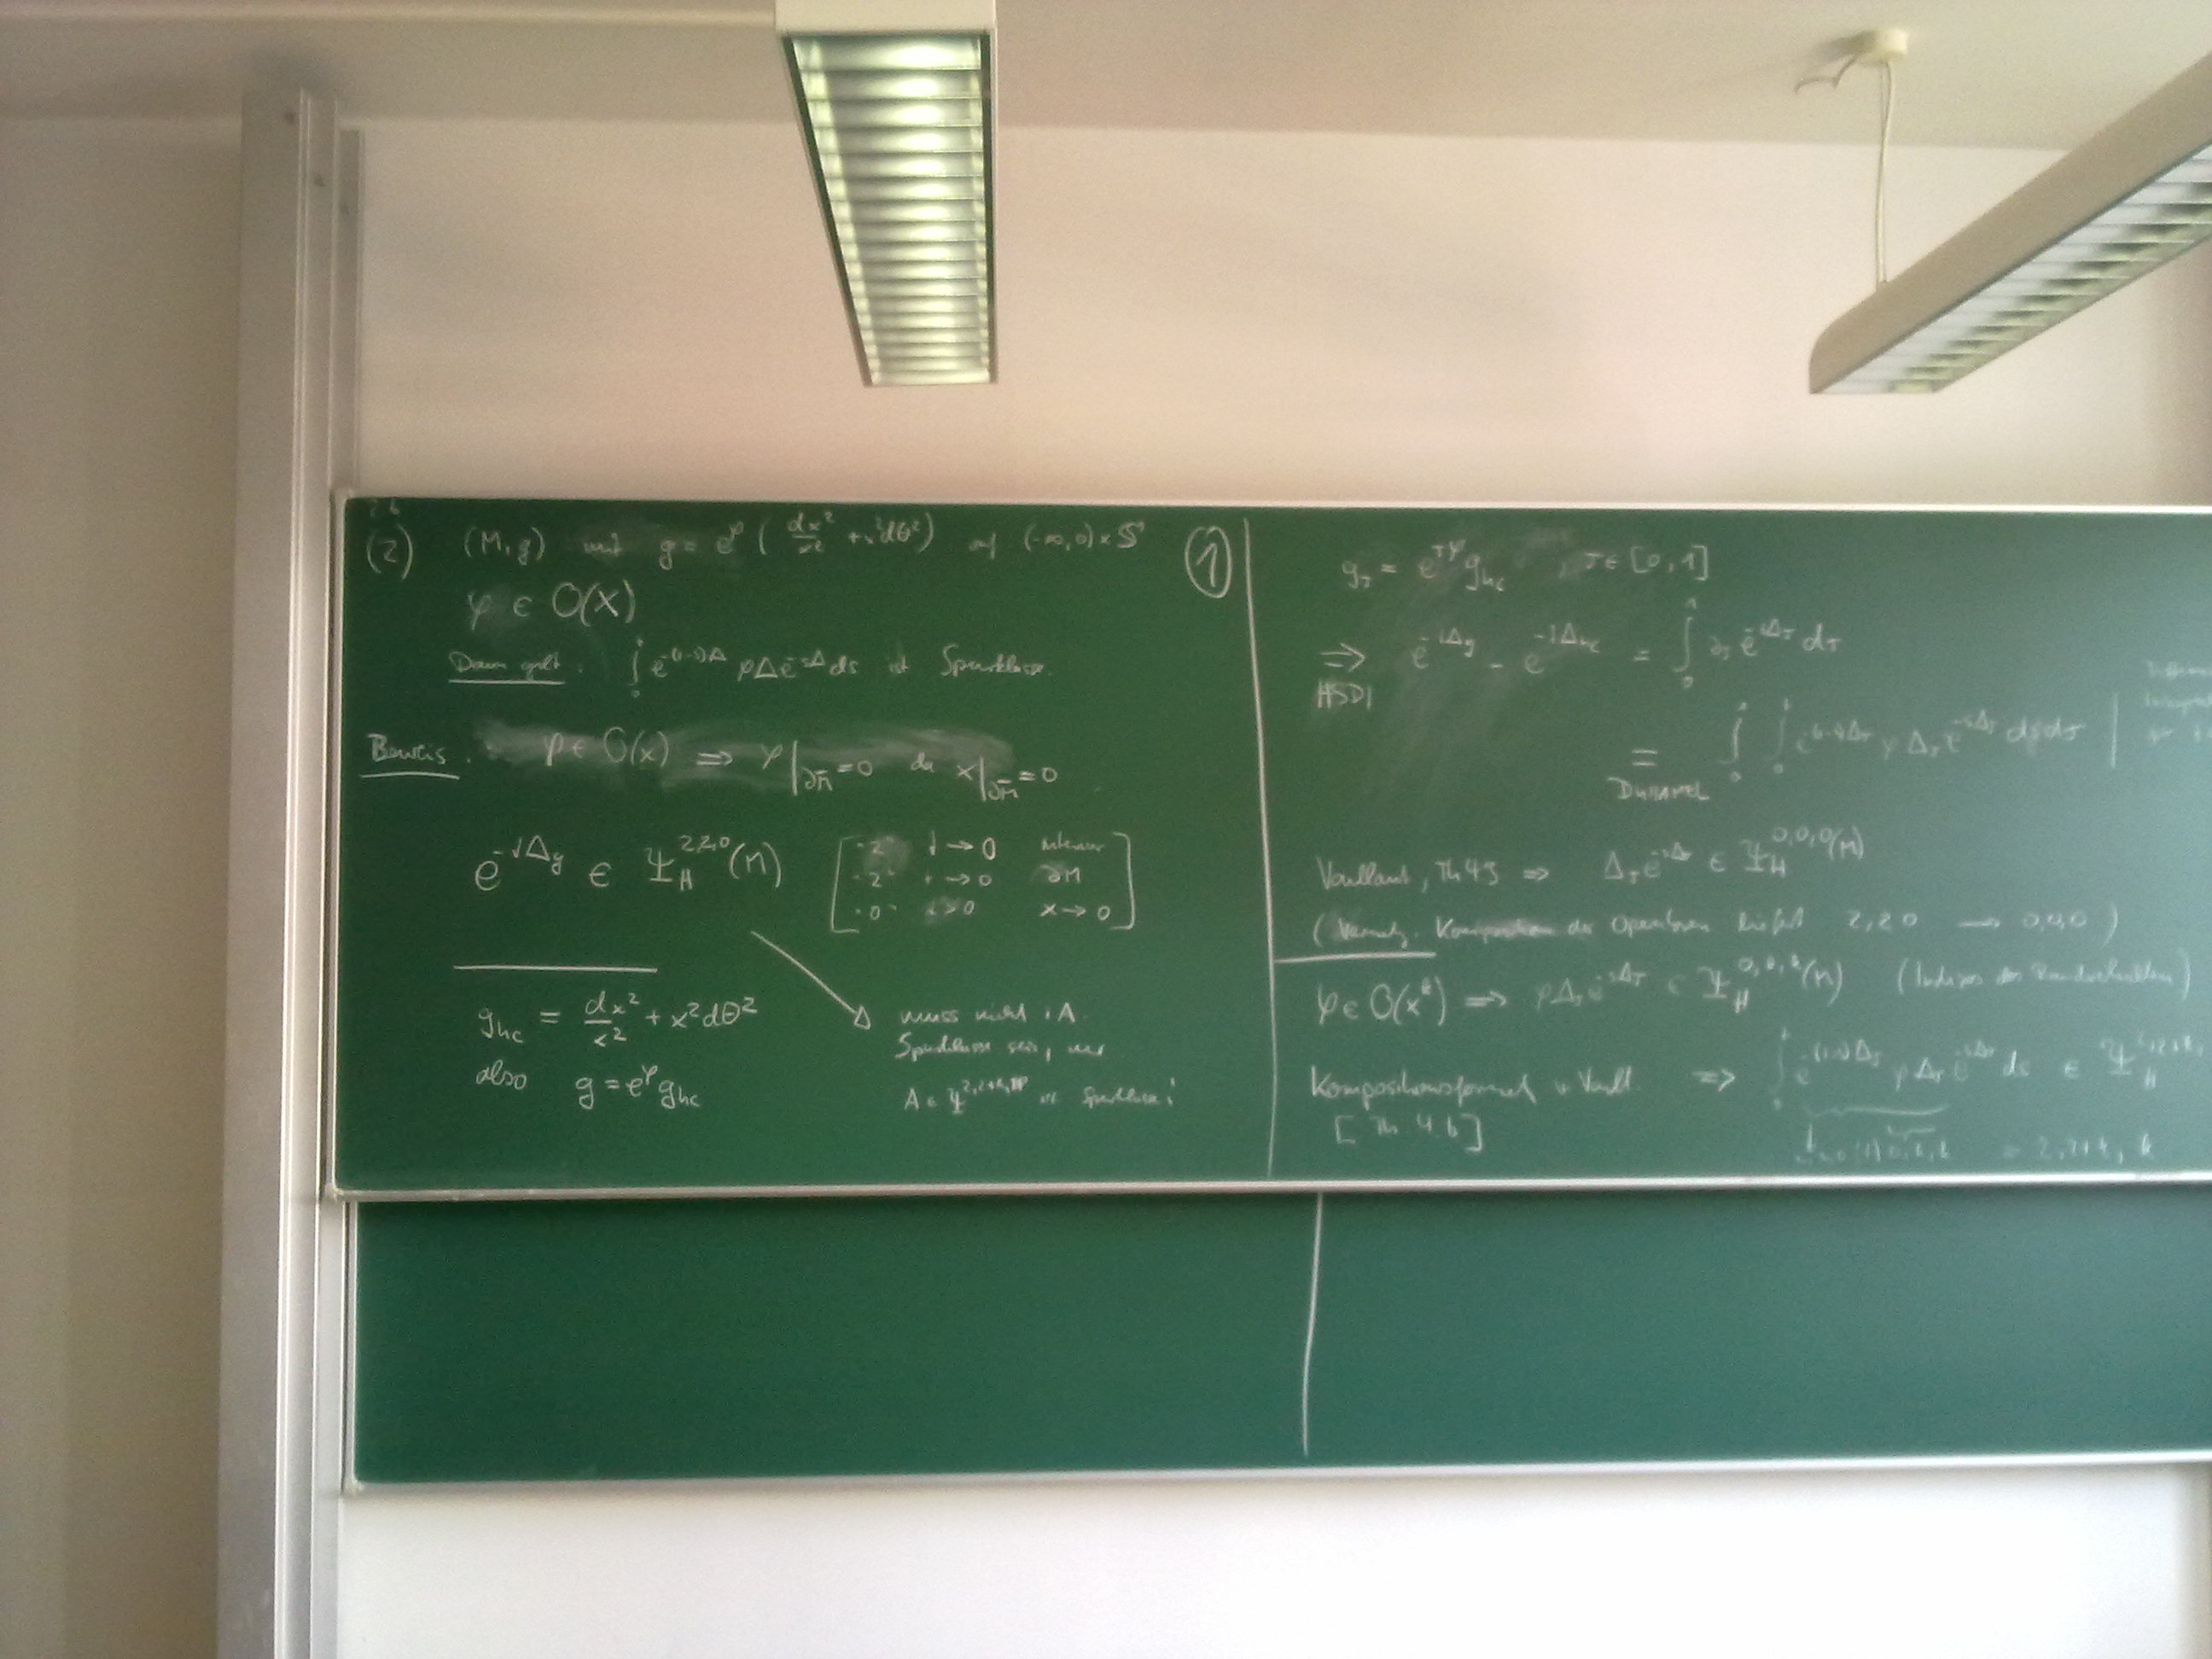 (2) (M,g) mit g = e^φ ( dx²/x² + x²dθ² ) auf (-∞,0)×S¹
φ ∈ O(x)
Dann gilt: ∫₀ᵗ e^{-(t-s)Δ} φΔe^{-sΔ} ds ist Spurklasse.
Beweis: φ ∈ O(x) ⇒ φ|_{∂M̄} = 0 da x|_{∂M̄} = 0
e^{-tΔ_g} ∈ Ψ_H^{2,2,0}(M)
"2" t → 0 interior
"2" t → 0 ∂M
"0" t>0 x → 0
g_hc = dx²/x² + x²dθ²
also g = e^φ g_hc
Δ muss nicht i.A.
Spurklasse sein, nur
A ∈ Ψ ist Spurklasse!
①
g_τ = e^{τφ} g_hc , τ ∈ [0,1]
⇒ e^{-tΔ_g} - e^{-tΔ_hc} = ∫₀¹ ∂_τ e^{-tΔ_τ} dτ
HSDI
= ∫₀¹ ∫₀ᵗ e^{-(t-s)Δ_τ} φ Δ_τ e^{-sΔ_τ} ds dτ
DUHAMEL
Vaillant, Th 4.5 ⇒ Δ_τ e^{-sΔ_τ} ∈ Ψ_H^{0,0,0}(M)
Komposition der Operatoren liefert 2,2,0 → 0,0,0 )
φ ∈ O(x^k) ⇒ φΔ_τ e^{-sΔ_τ} ∈ Ψ_H^{0,k,k}(M) (Indizes der Randverhalten)
Kompositionsformel v. Vaill. ⇒ ∫₀ᵗ e^{-(t-s)Δ_τ} φ Δ_τ e^{-sΔ_τ} ds ∈ Ψ_H
[Th 4.6]
0,k,k = 2,2+k,k